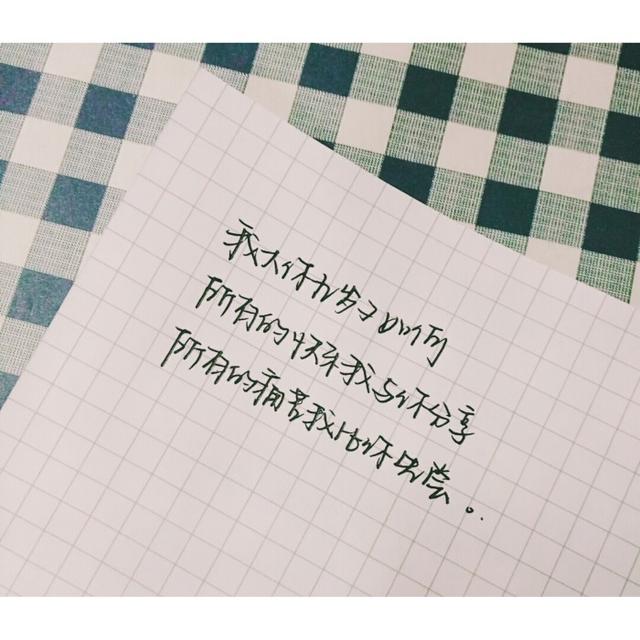 我大你九岁又如何
所有的快乐我与你分享
所有的痛苦我比你先尝。..